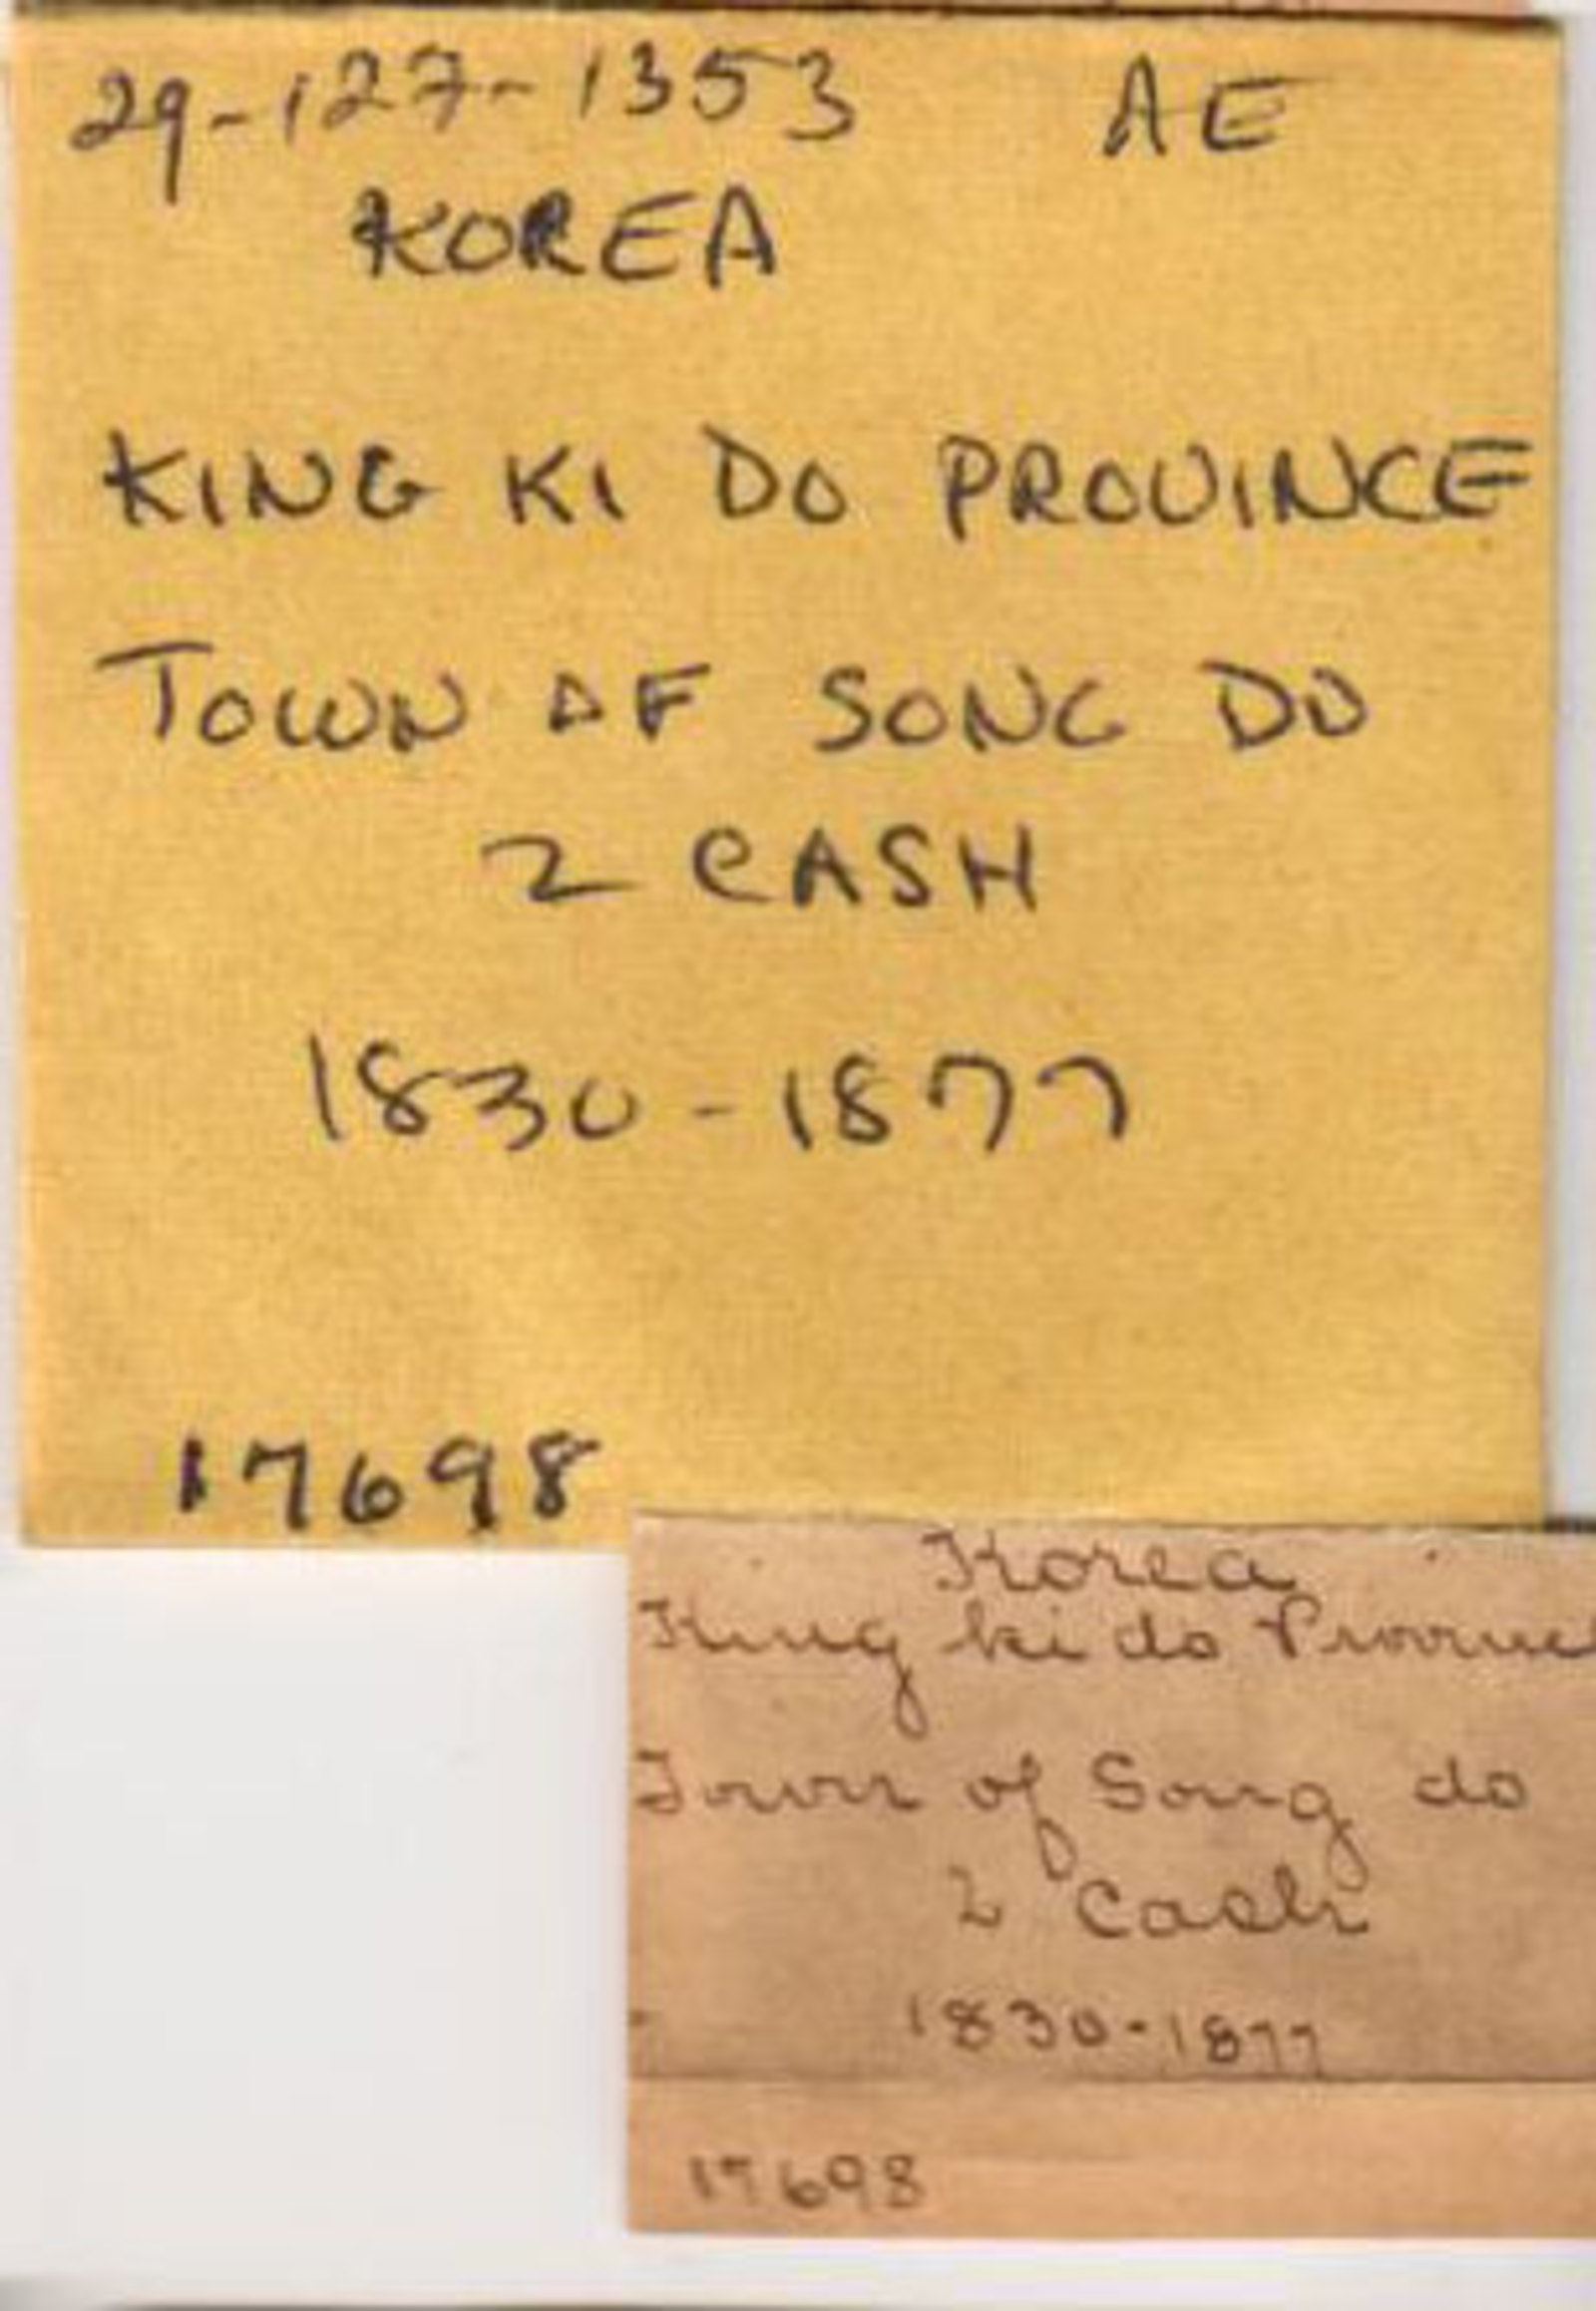 29-127-1353 AE
KOREA
KING KI DO PROVINCE
TOWN OF SONG DO
2 CASH
1830-1877
17698
Korea
King ki do Provinc
Town of Song do
2 Cash
1830-1877
17698